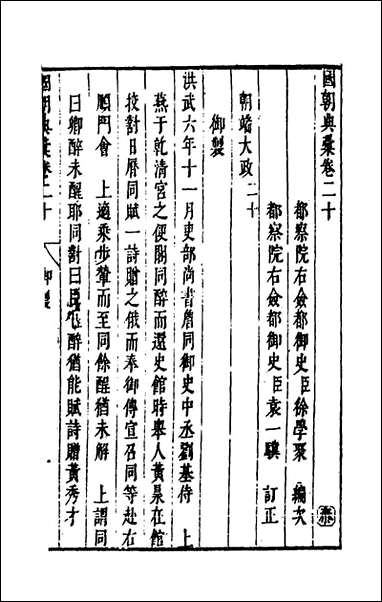 國朝典彙卷二十
都察院右僉都御史臣徐學聚 編次
都察院右僉都御史臣袁一驥 訂正
朝端大政二十
御製
洪武六年十一月吏部尚書詹同御史中丞劉基侍 上
燕于乾清宮之便閣同醉而還史館時舉人黃㫤在館
挍對日曆同賦一詩贈之俄而奉御傳宣召同等赴右
順門會 上適乘步輦而至同餘酲猶未解 上謂同
曰卿醉未醒耶同對曰臣雖醉猶能賦詩贈黃秀才
國朝典彙卷二十 御製